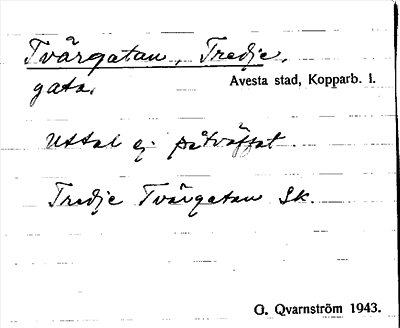 Tvärgatan, Tredje,
gata. Avesta stad, Kopparb. l.
Uttal ej påträffat.
Tredje Tvärgatan Sk.
G. Qvarnström 1943.